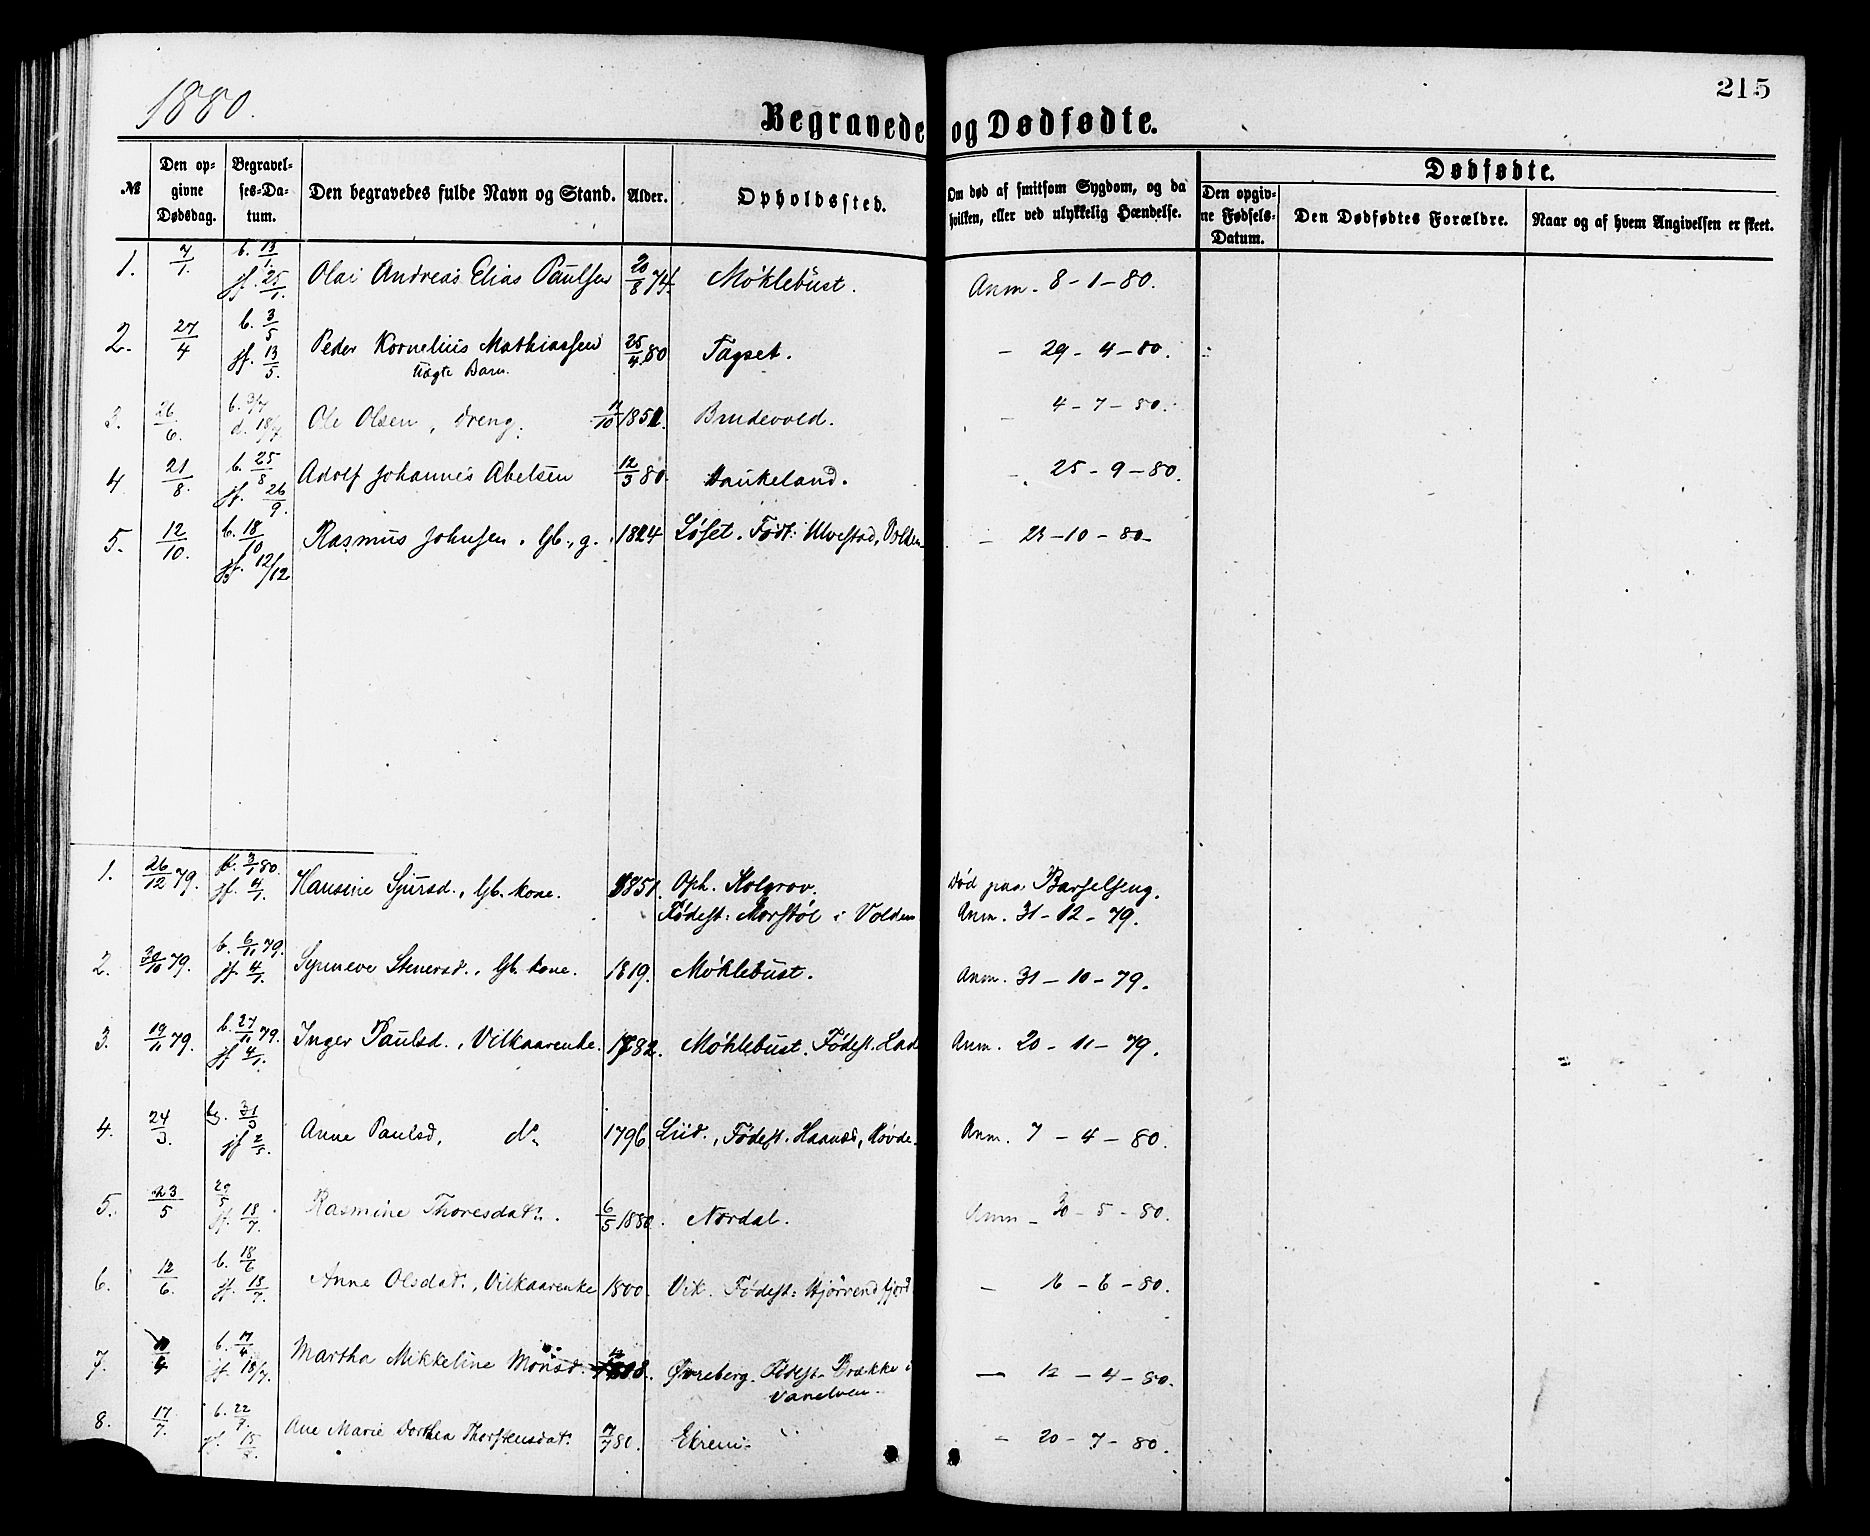 1880.
215
Begravede og Dødfødte.
№
Den opgivne Dødsdag.
Begravelses-Datum.
Den begravedes fulde Navn og Stand.
Alder.
Opholdssted.
Om død af smitsom Sygdom, og da hvilken, eller ved ulykkelig Hændelse.
Dødfødte.
Den opgivne Fødsels-Datum.
Den Dødfødtes Forældre.
Naar og af hvem Angivelsen er skeet.
1. 7/1. b. 13/1. jf. 25/1. Olai Andreas Elias Paulsen 20/8 74. Møklebust. Anm. 8-1-80.
2. 27/4 b. 3/5 jf. 13/5. Peder Kornelius Mathiassen 25/4 80 Tagset. - 29-4-80.
Uægte Barn.
3. 26/6. b. 3/7 18/7. Ole Olsen, Dreng. 11/10 1851. Brudevold. - 4-7-80.
4 21/8. b. 25/8 jf. 26/9. Adolf Johannes Abelsen 12/3 80. Haukeland. - 25-9-80.
5. 12/10. b. 18/10 jf. 12/12 Rasmus Johnsen. Gb., g. 1824 Løset. Født: Ulvestad, Volden - 23-10-80-
1. 26/12 79. 3/1 80. jf. 4/1. Hansine Sjursd., Gb. kone. 1851. Oph. Kolgrov. Død paa Barselseng.
Fødest: Morstøl i Volden Anm. 31-12-79.
2. 30/10 79. b. 6/11 79. jf. 4/1. Synneve Stenersd., Gb. kone. 1819. Møklebust. Anm. 31-10-79.
3. 19/11 79. b. 27/11 79. jf 4/1. Inger Paulsd., Vilkaarenke. 1782. Møklebust. Fødest. Anm. 20-11-79.
4. 24/3. 31/3 jf 2/5. Anne Paulsd, do 1796. Liid., Fødest. Rovde. Anm. 7-4-80.
5. 23/5 29/5 jf. 18/7. Rasmine Thoresdatr. 6/5 1880. Nordal. Anm - 30-5-80.
6. 12/6. b. 18/6 jf. 18/7. Anne Olsdatr., Vilkaarenke 1800. Vik. Fødest: Hjørrendfjord - 16-6-80.
7. b. 17/4. jf. 18/7. Martha Mikkeline Monsd. Øvreberg. Fødest. Brække i - 12-4-80.
Vanelven.
8. 17/7. b. 22/7. Ane Marie Dorthea Thorstensdatr. 7/7 80. Ekrem. - 20-7-80.